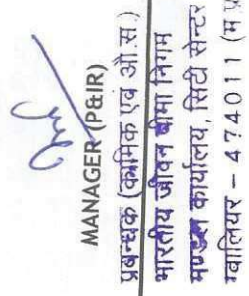 MANAGER (P&IR)
प्रबन्धक (कार्मिक एवं औ.स.)
भारतीय जीवन बीमा निगम
मण्डल कार्यालय, सिटी सेन्टर
ग्वालियर – 474011 (म प्र